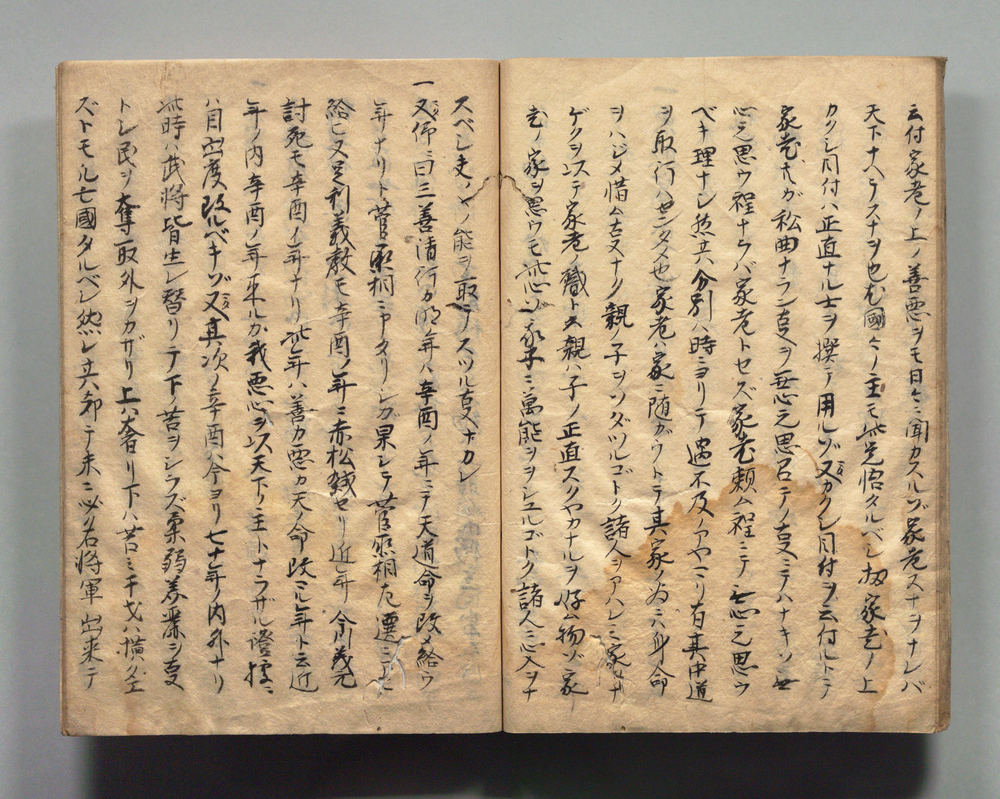 云付家老ノ上ノ善悪ヲモ日々ニ聞カスルゾ家老スナヲナレバ
天下ナベテスナヲ也尤國々ノ主モ此覚悟タルベシ扨家老ノ上
カクシ目付ハ正直ナル士ヲ撰テ用ルゾ又カクシ目付ヲ云付ルトテ
家老
心元思ウ程ナラバ家老トセズ家老頼ム程ニテ無心元思ウ
ベキ理ナシ然共分別ハ時ニヨリテ過不及ノアヤマリ有其中道
ヲ取行ハセンタメ也家老ハ家ニ随ガウトテ其家ノ為ニ身命
ヲハジメ惜ム古又ナク親ノ子ヲソダツルゴトク諸人ヲアハレミ
家老ノ職ト又親ハ子ノ正直スクヤカナルヲ好ム物ゾ家
老ノ家ヲ思ウモ此心ゾ家子ニ萬能ヲヲシユルゴトク諸人ニ心入ヲナ
スベシ夫々ノ能ヲ取テスツル古又ナカレ
一又仰ニ曰三善清行カ明年ハ辛酉ノ年ニテ天道命ヲ改メ給ウ
年ナリト菅丞相ニ申タリシガ果シテ菅丞相左遷ニ
給ヒ又足利義教モ辛酉ノ年ニ赤松弑セリ近年今川義元
討死モ辛酉ノ年ナリ此年ハ善カ悪カ天命改ル年ト云近
年ノ内辛酉ノ年来ルカ我悪心ヲ以天下ノ主トナラザル證據ニ
ハ目出度改ルベキゾ又其次ノ辛酉ハ今ヨリ七十年ノ内外ナリ
此時ハ武将皆生レ替リテ下苦ヲシラズ柔弱
トシ民ヲ奪取外ヲカザリ上ハ奢リ下ハ苦ミ干戈ハ横タエ
ズトモル亡國タルベシ然レ共郤テ末ニ必名将軍出来テ